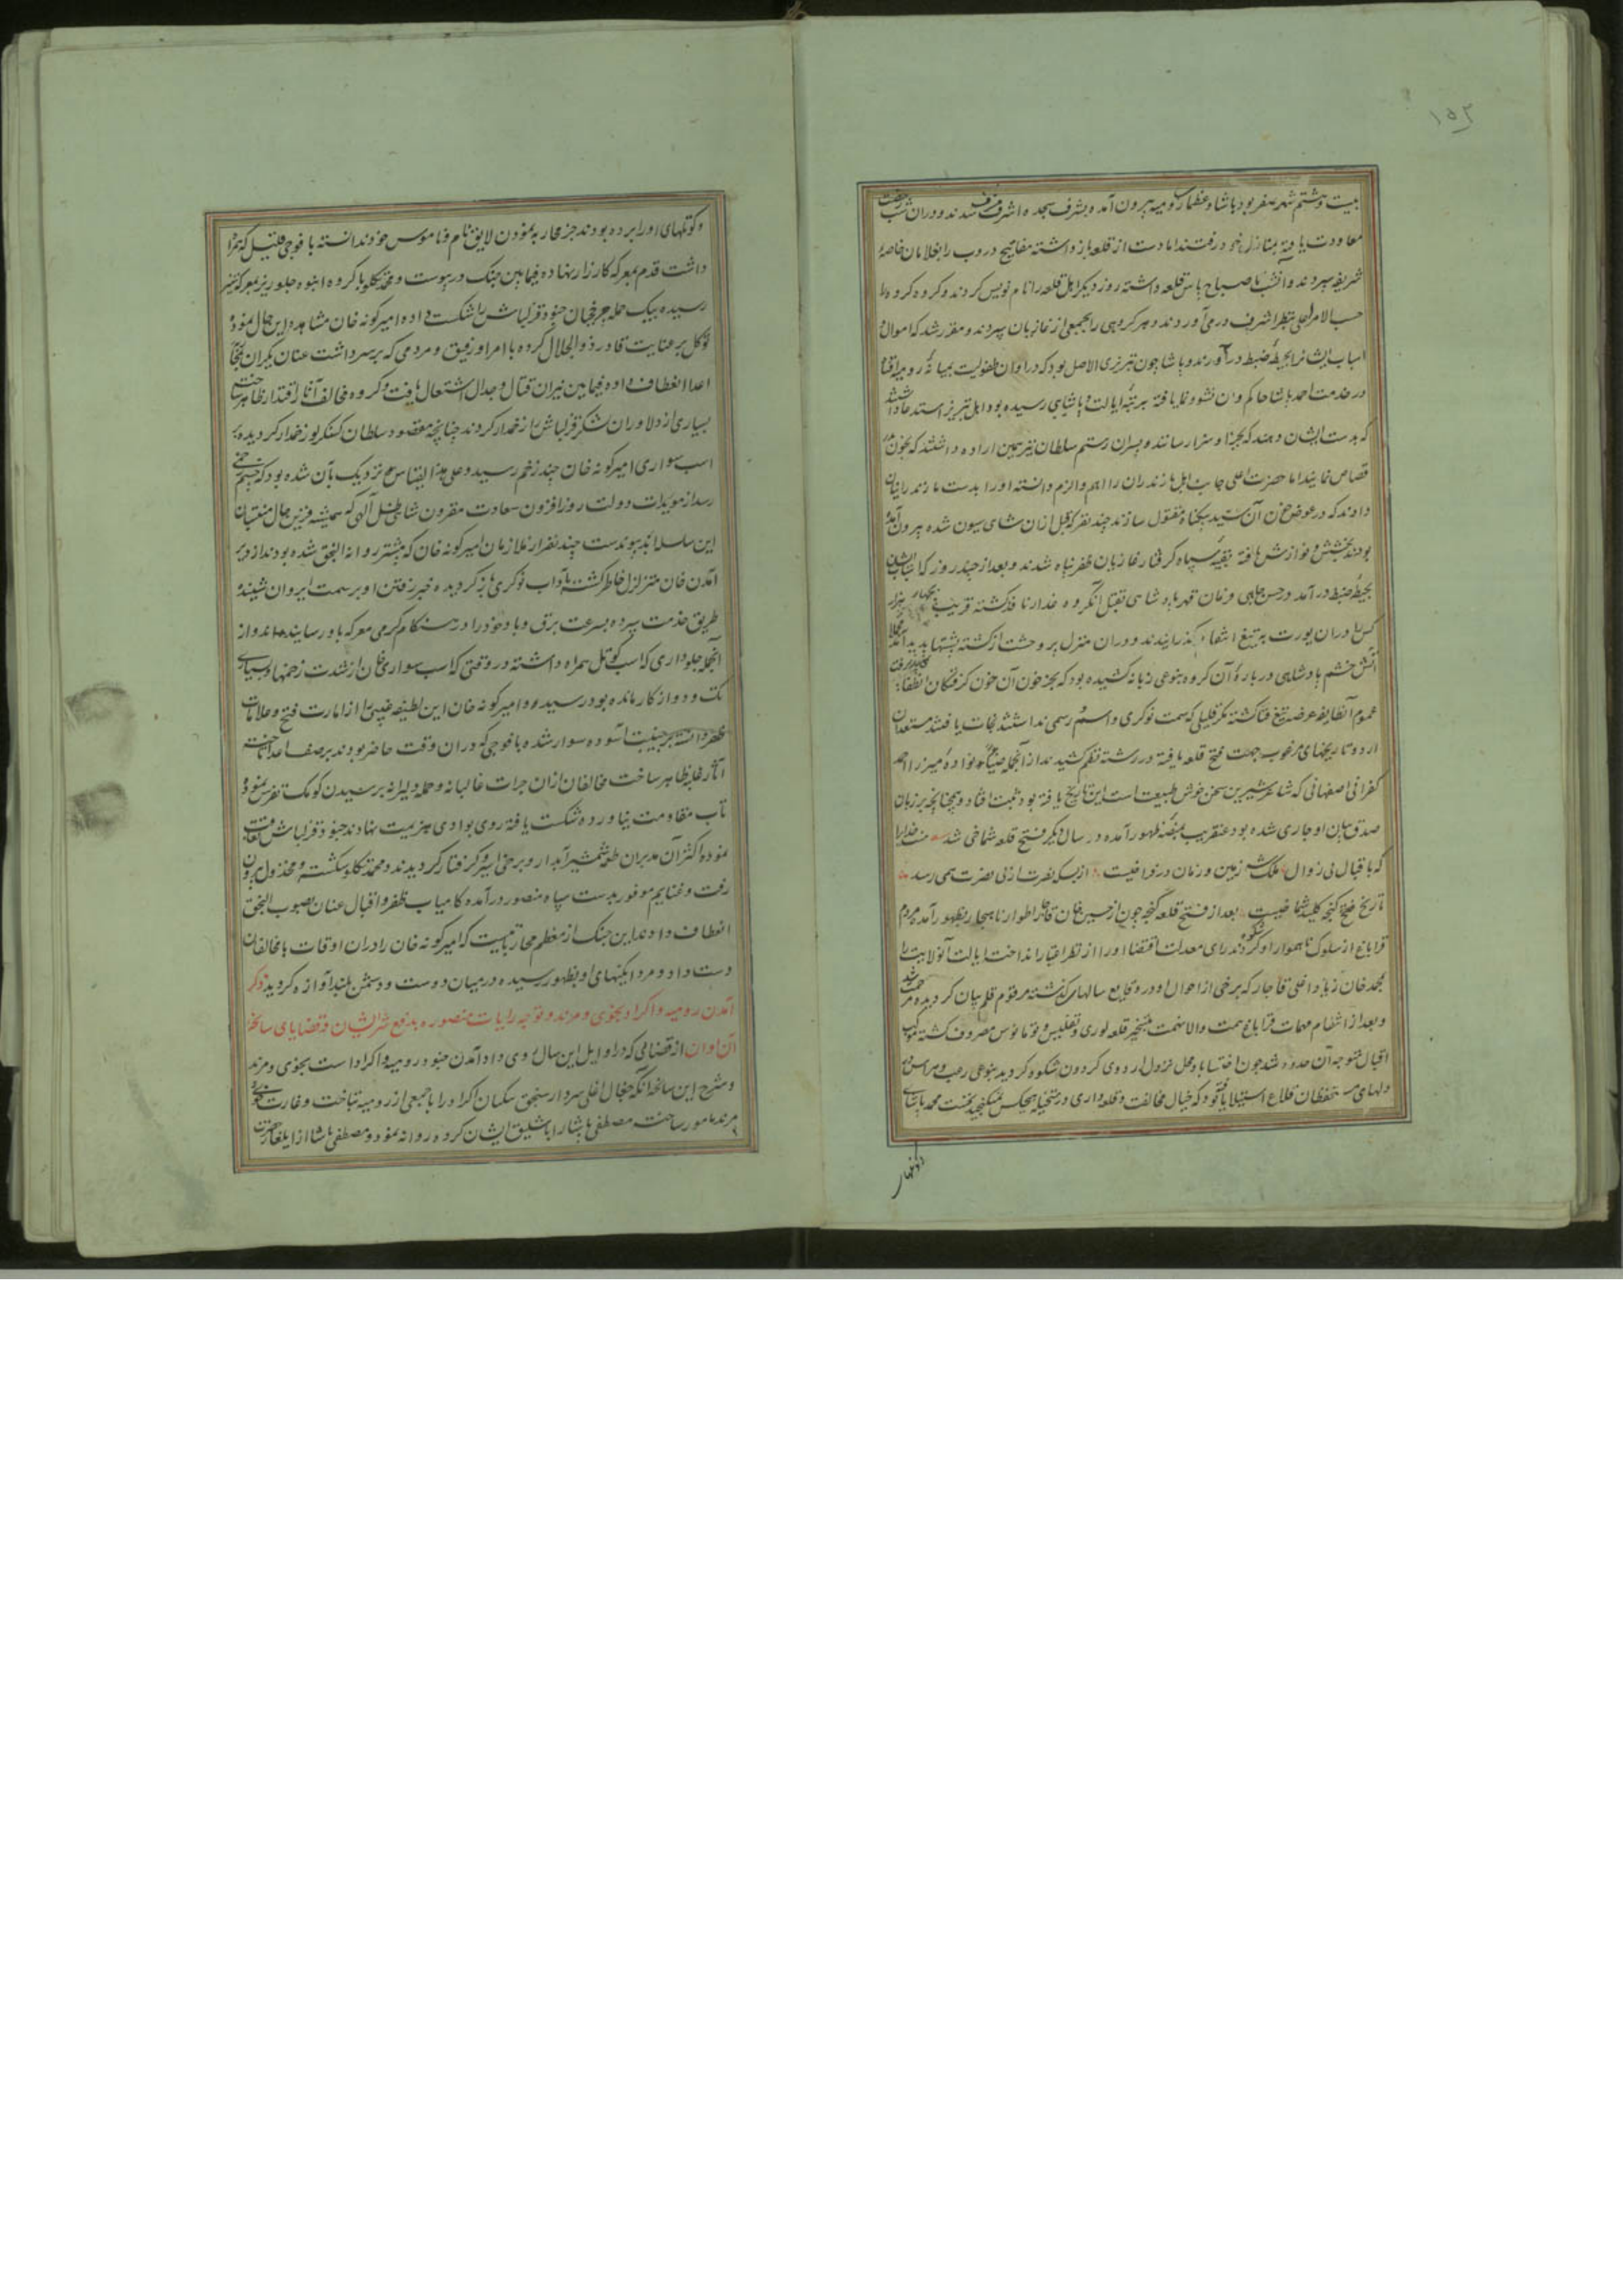 ۱۵۲
بیست و هشتم شهر صفر بود پاشا و عظمای رومیه بیرون آمده بشرف سجده اشرف مشرف شدند و در آن شب رخصت
معاودت یافته بمنازل خود رفتند اما دست از قلعه باز داشته مفاتیح دروب را بغلامان خاصهٔ
شریفه سپردند و آنشب تا صباح پاس قلعه داشته روز دیگر اهل قلعه را نام نویس کردند و گروه گروه را
حسب الامر اعلی بنظر اشرف در می آوردند و هر گروهی را بجمعی از غازیان سپردند و مقرر شد که اموال و
اسباب ایشانرا بحیطهٔ ضبط درآورند و پاشا چون تبریزی الاصل بود که در اوان طفولیت بمیانهٔ رومیه افتاده
در خدمت احمد پاشا حاکم وان نشو و نما یافته برتبهٔ ایالت و پاشایی رسیده بود اهل تبریز استدعا داشتند
که بدست ایشان دهند که بجزا و سزا رسانند و پسران رستم سلطان نیز همین اراده داشتند که بخون پدر
قصاص نمایند اما حضرت اعلی جانب اهل مازندران را اهم و الزم دانسته او را بدست مازندرانیان
دادند که در عوض خون آن سید بیگناه مقتول سازند چند نفر که قبل از آن شاهی سیون شده بیرون آمده
بودند بخشش و نوازش یافته بقیه سپاه گرفتار غازیان ظفر پناه شدند و بعد از چند روز که اسباب ایشان
بحیطهٔ ضبط درآمد و حسن جلبی فرمان قهر پادشاهی بقتل آنگروه غدار نافذ گشته قریب هزار
کس را در آن یورت به تیغ انتقام گذرانیدند و در آن منزل پر وحشت از کشته پشتها پدید آمد
آتش خشم پادشاهی در بارهٔ آن گروه بنوعی زبانه کشیده بود که بجز خون آن خون گرفتگان انطفا
عموم آنطایفه عرضه تیغ فنا گشته مگر قلیلی که سمت نوکری و اسم رسمی نداشتند نجات یافتند مستعدان
اردو تاریخهای مرغوب جهت فتح قلعه یافته در رشته نظم کشیدند از آنجمله میرزا احمد
کفرانی اصفهانی که شاعر شیرین سخن خوش طبیعت است این تاریخ یافته بود ثبت افتاد و همچنانچه بر زبان
صدق بیان او جاری شده بود عنقریب بمنصهٔ ظهور آمده در سال دیگر فتح قلعه شماخی شد منت خدایرا
که باقبال بی زوال ملک زمین و زمان در نوا نیست از بسکه نصرت از پی نصرت همی رسد
تاریخ فتح گنجه کلید شماخیست بعد از فتح قلعه گنجه چون از حسین خان قاجار اطوار ناهنجار بظهور آمده مردم
قراباغ از سلوک ناهموار او شکوه کردند رای معدلت اقتضا او را از نظر اعتبار انداخت ایالت آنولایت را
بمحمد خان زیاد اغلی قاجار که برخی از احوال او در وقایع سالهای گذشته مرقوم قلم بیان گردیده مرحمت شد
و بعد از انتظام مهمات قراباغ همت والا نهمت بتسخیر قلعه لوری و تفلیس و تومانوس مصروف گشته موکب
اقبال متوجه آن حدود شد چون اختسا باد محل نزول اردوی گردون شکوه گردید بنوعی رعب و هراس در
دلهای مستحفظان قلاع استیلا یافته بود که خیال مخالفت و قلعه داری در مخیله هیچکس نمیگنجید نخست محمد پاشای
و کوتلهای او را برده بودند جز محاربه نمودن لایق نام و ناموس خود ندانسته با فوجی قلیل که همراه
داشت قدم بمعرکه کارزار نهاده فیمابین جنگ در پیوست و محمد تکلو با گروه انبوه جلو ریز بمعرکه ستیز
رسیده بیک حمله چرخچیان جنود قزلباش را شکست داده امیر گونه خان مشاهده این حال نموده
توکل بر عنایت قادر ذوالجلال کرده با امرا و رفیق و مردمی که بر سر داشت عنان یکران بجانب
اعدا انعطاف داده فیمابین نیران قتال و جدال اشتعال یافت و گروه مخالف آثار اقتدار ظاهر ساخته
بسیاری از دلاوران لشکر قزلباش را زخمدار کردند چنانچه مقصود سلطان کنگرلو زخمدار گردیده بر
اسب سواری امیر گونه خان چند زخم رسید و علی هذا القیاس نزدیک بآن شده بود که چشم زخمی
رسد از مویدات دولت روز افزون سعادت مقرون شاهی ظل آلهی که همیشه قرین حال منتسبان
این سلسله ابد پیوندست چند نفر از ملازمان امیر گونه خان که پیشتر روانه النجق شده بودند از دیر
آمدن خان متزلزل خاطر گشته بآداب نوکری باز گردیده خبر رفتن او بر سمت ایروان شنیده
طریق خدمت سپرده بسرعت برق و باد خود را در هنگام گرمی معرکه باو رسانیدند و از
آنجمله جلوداری که اسب کوتل همراه داشته در وقتی که اسب سواری خان از شدت زخمها و بسیاری
تک و دو از کار مانده بود رسیده و امیر گونه خان این لطیفه غیبی را از امارت فتح و علامات
ظفر دانسته بر جنیبت آسوده سوار شده با فوجی که در آن وقت حاضر بودند بر صف اعدا تاخته
آثار غلبه ظاهر ساخت مخالفان از آن جرات غالبانه و حمله دلیرانه برسیدن کومک تفرس نموده
تاب مقاومت نیاورده شکست یافته روی بوادی هزیمت نهادند جنود قزلباش تعاقب
نموده اکثر آن مدبران طعمه شمشیر آبدار و برخی اسیر و گرفتار گردیدند و محمد تکلو شکسته و مخذول بیرون
رفت و غنایم موفور بدست سپاه منصور درآمده کامیاب ظفر و اقبال عنان بصوب النجق
انعطاف دادند این جنگ از معظم محارباتیست که امیر گونه خان را در آن اوقات با مخالفان
دست داد و مردانگیهای او بظهور رسیده در میان دوست و دشمن بلند آوازه گردید ذکر
آمدن رومیه و اکراد بخوی و مرند و توجه رایات منصوره بدفع شر ایشان و قضایای سانحه
آن اوان از قضایی که در اوایل این سال روی داد آمدن جنود رومیه و اکراد است بخوی و مرند
و شرح این سانحه آنکه جغال اغلی سردار سنجق سکمان اکراد را با جمعی از رومیه بتاخت و غارت خوی
و مرند مامور ساخته مصطفی پاشا را باشلیق ایشان کرده روانه نمود و مصطفی پاشا از ایلغار